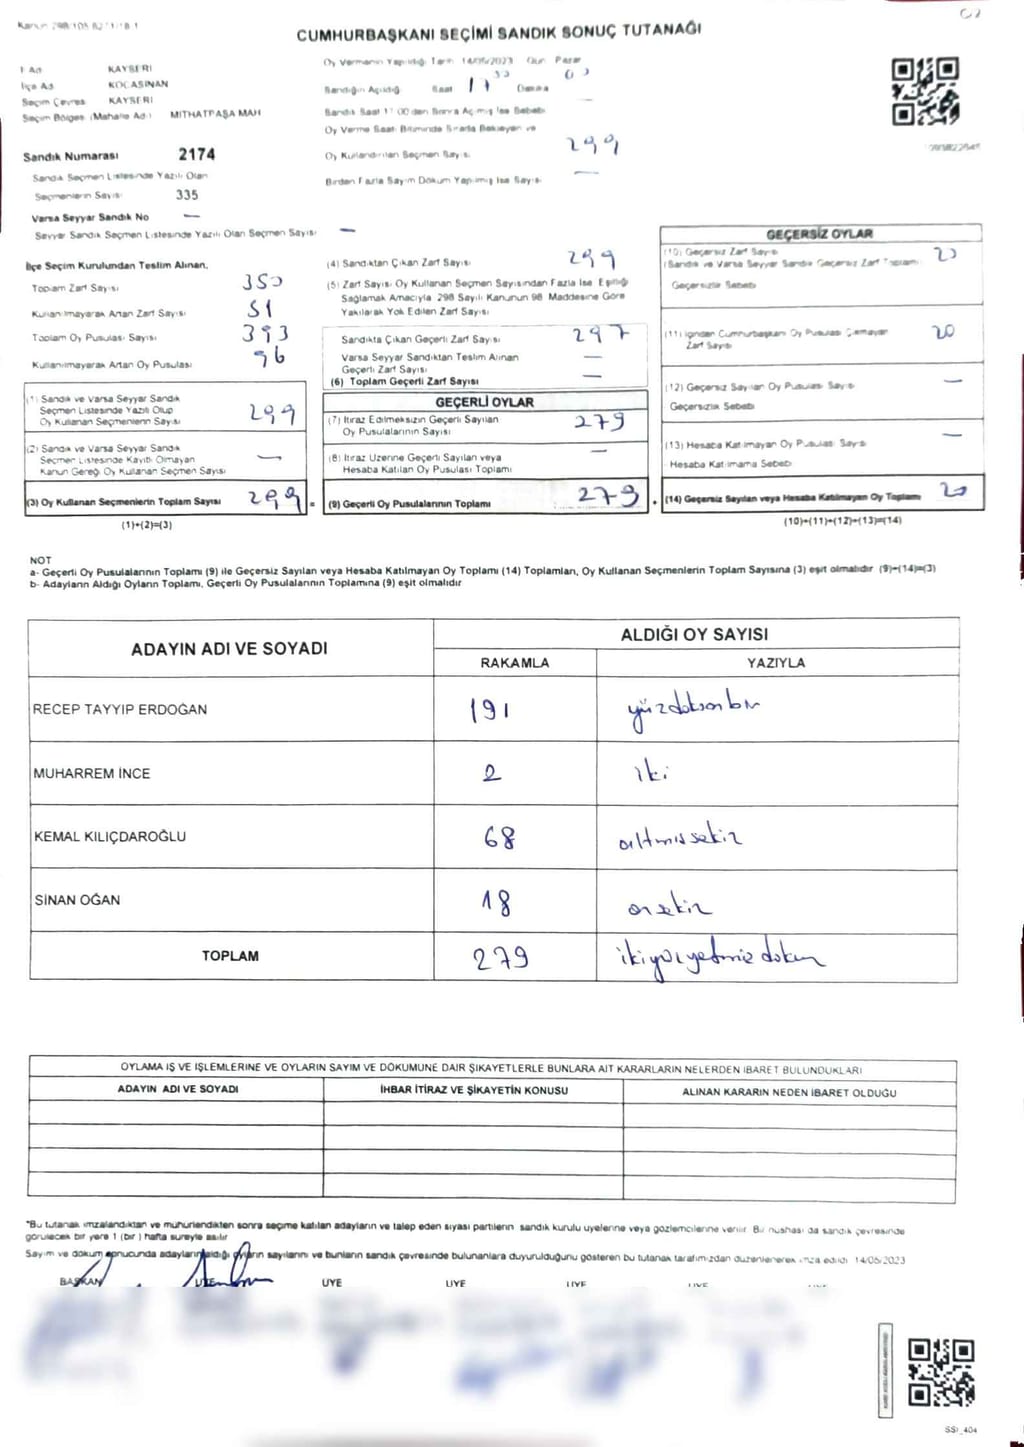 CUMHURBAŞKANI SEÇİMİ SANDIK SONUÇ TUTANAĞI
İl Adı KAYSERİ
İlçe Adı KOCASİNAN
Seçim Çevresi KAYSERİ
Seçim Bölgesi (Mahalle Adı) MİTHATPAŞA MAH
Sandık Numarası 2174
Sandık Seçmen Listesinde Yazılı Olan
Seçmenlerin Sayısı 335
Varsa Seyyar Sandık No —
Seyyar Sandık Seçmen Listesinde Yazılı Olan Seçmen Sayısı —
Oy Vermenin Yapıldığı Tarih 14/05/2023 Gün Pazar
Sandığın Açıldığı Saat 17 Dakika
Sandık Saat 17 00 den Sonra Açılmış İse Sebebi —
Oy Verme Saati Bitiminde Sırada Bekleyen ve
Oy Kullandırılan Seçmen Sayısı 299
Birden Fazla Sayım Döküm Yapılmış İse Sayısı —
İlçe Seçim Kurulundan Teslim Alınan,
Toplam Zarf Sayısı 350
Kullanılmayarak Artan Zarf Sayısı 51
Toplam Oy Pusulası Sayısı 393
Kullanılmayarak Artan Oy Pusulası 96
(1) Sandık ve Varsa Seyyar Sandık
Seçmen Listesinde Yazılı Olup
Oy Kullanan Seçmenlerin Sayısı 299
(2) Sandık ve Varsa Seyyar Sandık
Seçmen Listesinde Kayıtlı Olmayan
Kanun Gereği Oy Kullanan Seçmen Sayısı —
(3) Oy Kullanan Seçmenlerin Toplam Sayısı 299 =
(1)+(2)=(3)
(4) Sandıktan Çıkan Zarf Sayısı 299
(5) Zarf Sayısı Oy Kullanan Seçmen Sayısından Fazla İse Eşitliği
Sağlamak Amacıyla 298 Sayılı Kanunun 98 Maddesine Göre
Yakılarak Yok Edilen Zarf Sayısı
Sandıkta Çıkan Geçerli Zarf Sayısı 297
Varsa Seyyar Sandıktan Teslim Alınan
Geçerli Zarf Sayısı —
(6) Toplam Geçerli Zarf Sayısı —
GEÇERLİ OYLAR
(7) İtiraz Edilmeksizin Geçerli Sayılan
Oy Pusulalarının Sayısı 279
(8) İtiraz Üzerine Geçerli Sayılan veya
Hesaba Katılan Oy Pusulası Toplamı —
(9) Geçerli Oy Pusulalarının Toplamı 279 +
GEÇERSİZ OYLAR
(10) Geçersiz Zarf Sayısı
(Sandık ve Varsa Seyyar Sandık Geçersiz Zarf Toplamı) 20
Geçersizlik Sebebi
(11) İçinden Cumhurbaşkanı Oy Pusulası Çıkmayan
Zarf Sayısı 20
(12) Geçersiz Sayılan Oy Pusulası Sayısı —
Geçersizlik Sebebi
(13) Hesaba Katılmayan Oy Pusulası Sayısı —
Hesaba Katılmama Sebebi
(14) Geçersiz Sayılan veya Hesaba Katılmayan Oy Toplamı 20
(10)+(11)+(12)+(13)=(14)
NOT
a- Geçerli Oy Pusulalarının Toplamı (9) ile Geçersiz Sayılan veya Hesaba Katılmayan Oy Toplamı (14) Toplamları, Oy Kullanan Seçmenlerin Toplam Sayısına (3) eşit olmalıdır (9)+(14)=(3)
b- Adayların Aldığı Oyların Toplamı, Geçerli Oy Pusulalarının Toplamına (9) eşit olmalıdır
ADAYIN ADI VE SOYADI
ALDIĞI OY SAYISI
RAKAMLA YAZIYLA
RECEP TAYYIP ERDOĞAN 191 yüzdoksanbir
MUHARREM İNCE 2 iki
KEMAL KILIÇDAROĞLU 68 altmışsekiz
SİNAN OĞAN 18 onsekiz
TOPLAM 279 ikiyüzyetmişdokuz
OYLAMA İŞ VE İŞLEMLERİNE VE OYLARIN SAYIM VE DÖKÜMÜNE DAİR ŞİKAYETLERLE BUNLARA AİT KARARLARIN NELERDEN İBARET BULUNDUKLARI
ADAYIN ADI VE SOYADI İHBAR İTİRAZ VE ŞİKAYETİN KONUSU ALINAN KARARIN NEDEN İBARET OLDUĞU
*Bu tutanak imzalandıktan ve mühürlendikten sonra seçime katılan adayların ve talep eden siyasi partilerin sandık kurulu üyelerine veya gözlemcilerine verilir. Bir nüshası da sandık çevresinde
görülecek bir yere 1 (bir) hafta süreyle asılır
Sayım ve döküm sonucunda adayların aldığı oyların sayılarını ve bunların sandık çevresinde bulunanlara duyurulduğunu gösteren bu tutanak tarafımızdan düzenlenerek imza edildi 14/05/2023
BAŞKAN ÜYE ÜYE ÜYE ÜYE ÜYE
SSİ_404